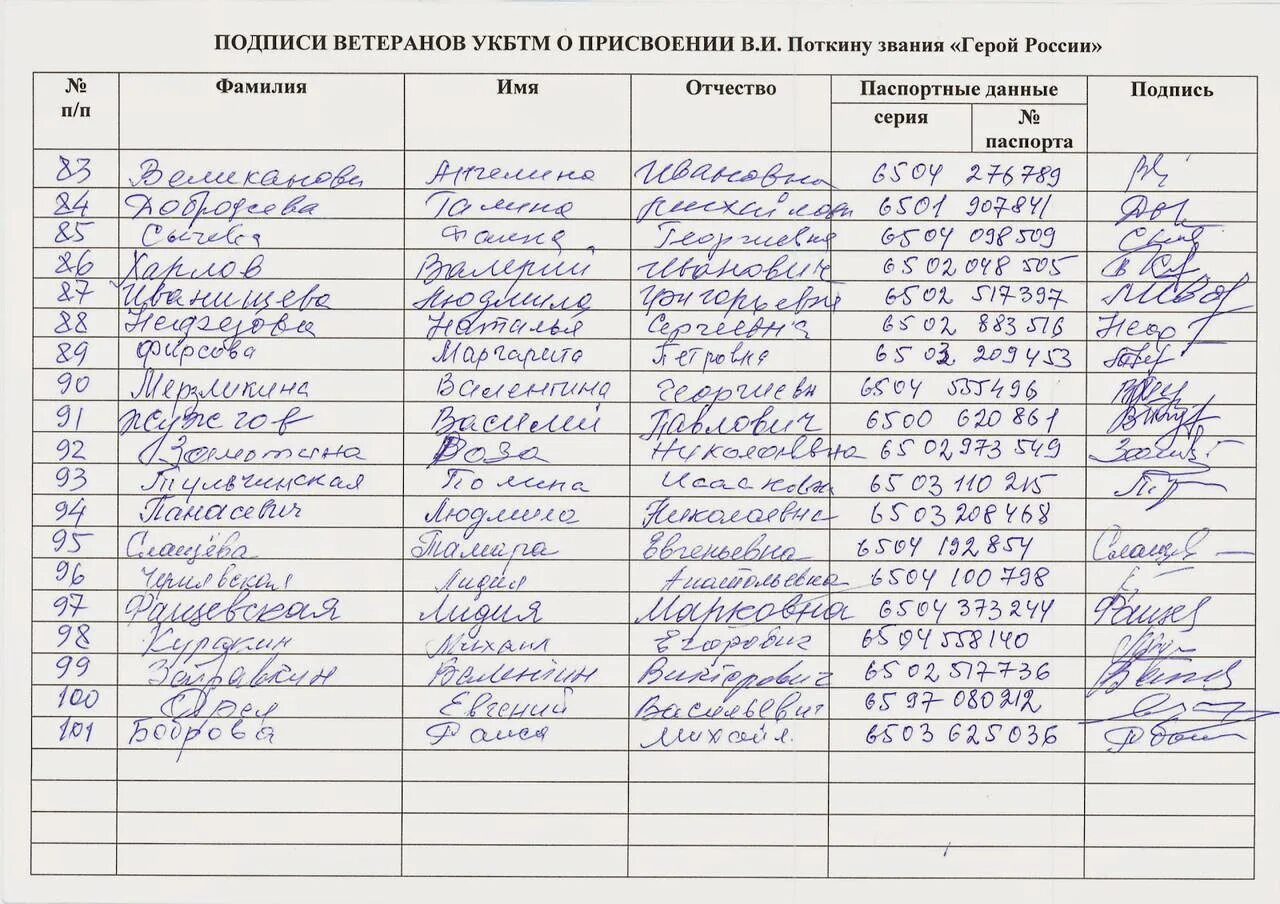 ПОДПИСИ ВЕТЕРАНОВ УКБТМ О ПРИСВОЕНИИ В.И. Поткину звания «Герой России»
№ п/п Фамилия Имя Отчество Паспортные данные Подпись
серия № паспорта
83 Великанова Ангелина Ивановна 6504 276789
84 Галина 6501 907841
85 Сычева Георгиевна 6504 098509
86 Харлов Валерий Иванович 6502 048505
87 Иванищева Людмила Григорьевна 6502 517397
88 Наталья Сергеевна 6502 883516
89 Фирсова Маргарита Петровна 6503 209453
90 Мерзликина Валентина Георгиевн 6504 555496
91 Жужгов Василий Павлович 6500 620861
92 Замотина Роза Николаевна 6502 973549
93 Тульчинская Полина Исааковна 6503 110215
94 Панасевич Людмила Николаевна 6503 208468
95 Слащёва Тамара Евгеньевна 6504 192854
96 Чернявская Лидия Анатольевна 6504 100798
97 Фащевская Лидия Марковна 6504 373244
98 Куракин Михаил Егорович 6504 558140
99 Заправкин Валентин Викторович 6502 517736
100 Евгений Васильевич 6597 080212
101 Боброва Раиса Михайл. 6503 625036